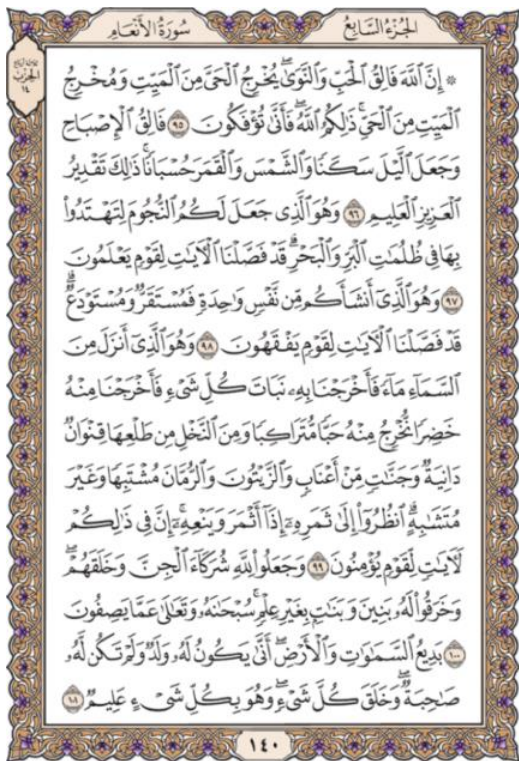 الجُزْءُ السَّابِعُ سُورَةُ الأَنْعَامِ
۞ إِنَّ ٱللَّهَ فَالِقُ ٱلْحَبِّ وَٱلنَّوَىٰۖ يُخْرِجُ ٱلْحَىَّ مِنَ ٱلْمَيِّتِ وَمُخْرِجُ
ٱلْمَيِّتِ مِنَ ٱلْحَىِّۚ ذَٰلِكُمُ ٱللَّهُۖ فَأَنَّىٰ تُؤْفَكُونَ ٩٥ فَالِقُ ٱلْإِصْبَاحِ
وَجَعَلَ ٱلَّيْلَ سَكَنًا وَٱلشَّمْسَ وَٱلْقَمَرَ حُسْبَانًاۚ ذَٰلِكَ تَقْدِيرُ
ٱلْعَزِيزِ ٱلْعَلِيمِ ٩٦ وَهُوَ ٱلَّذِى جَعَلَ لَكُمُ ٱلنُّجُومَ لِتَهْتَدُوا۟
بِهَا فِى ظُلُمَٰتِ ٱلْبَرِّ وَٱلْبَحْرِۗ قَدْ فَصَّلْنَا ٱلْءَايَٰتِ لِقَوْمٍ يَعْلَمُونَ
٩٧ وَهُوَ ٱلَّذِىٓ أَنشَأَكُم مِّن نَّفْسٍ وَٰحِدَةٍ فَمُسْتَقَرٌّ وَمُسْتَوْدَعٌۗ
قَدْ فَصَّلْنَا ٱلْءَايَٰتِ لِقَوْمٍ يَفْقَهُونَ ٩٨ وَهُوَ ٱلَّذِىٓ أَنزَلَ مِنَ
ٱلسَّمَآءِ مَآءً فَأَخْرَجْنَا بِهِۦ نَبَاتَ كُلِّ شَىْءٍ فَأَخْرَجْنَا مِنْهُ
خَضِرًا نُّخْرِجُ مِنْهُ حَبًّا مُّتَرَاكِبًا وَمِنَ ٱلنَّخْلِ مِن طَلْعِهَا قِنْوَانٌ
دَانِيَةٌ وَجَنَّٰتٍ مِّنْ أَعْنَابٍ وَٱلزَّيْتُونَ وَٱلرُّمَّانَ مُشْتَبِهًا وَغَيْرَ
مُتَشَٰبِهٍۗ ٱنظُرُوٓا۟ إِلَىٰ ثَمَرِهِۦٓ إِذَآ أَثْمَرَ وَيَنْعِهِۦٓۚ إِنَّ فِى ذَٰلِكُمْ
لَءَايَٰتٍ لِّقَوْمٍ يُؤْمِنُونَ ٩٩ وَجَعَلُوا۟ لِلَّهِ شُرَكَآءَ ٱلْجِنَّ وَخَلَقَهُمْۖ
وَخَرَقُوا۟ لَهُۥ بَنِينَ وَبَنَٰتٍۭ بِغَيْرِ عِلْمٍۚ سُبْحَٰنَهُۥ وَتَعَٰلَىٰ عَمَّا يَصِفُونَ
١٠٠ بَدِيعُ ٱلسَّمَٰوَٰتِ وَٱلْأَرْضِۖ أَنَّىٰ يَكُونُ لَهُۥ وَلَدٌ وَلَمْ تَكُن لَّهُۥ
صَٰحِبَةٌۖ وَخَلَقَ كُلَّ شَىْءٍۖ وَهُوَ بِكُلِّ شَىْءٍ عَلِيمٌ ١٠١
١٤٠